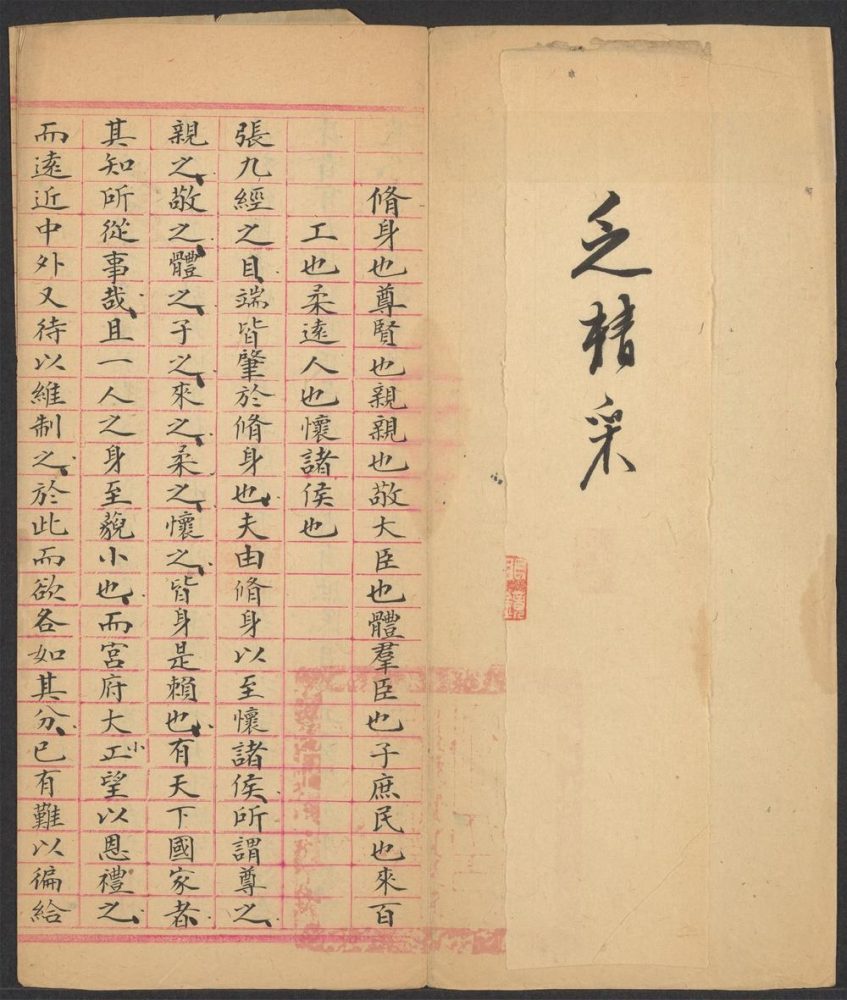 乏精采
脩身也尊賢也親親也敬大臣也體羣臣也子庶民也來百
工也柔遠人也懷諸侯也
張九經之目端皆肇於脩身也夫由脩身以至懷諸侯所謂尊之
親之敬之體之子之來之柔之懷之皆身是賴也有天下國家者
其知所從事哉且一人之身至藐小也而宮府大小工望以恩禮之
而遠近中外又待以維制之於此而欲各如其分已有難以徧給